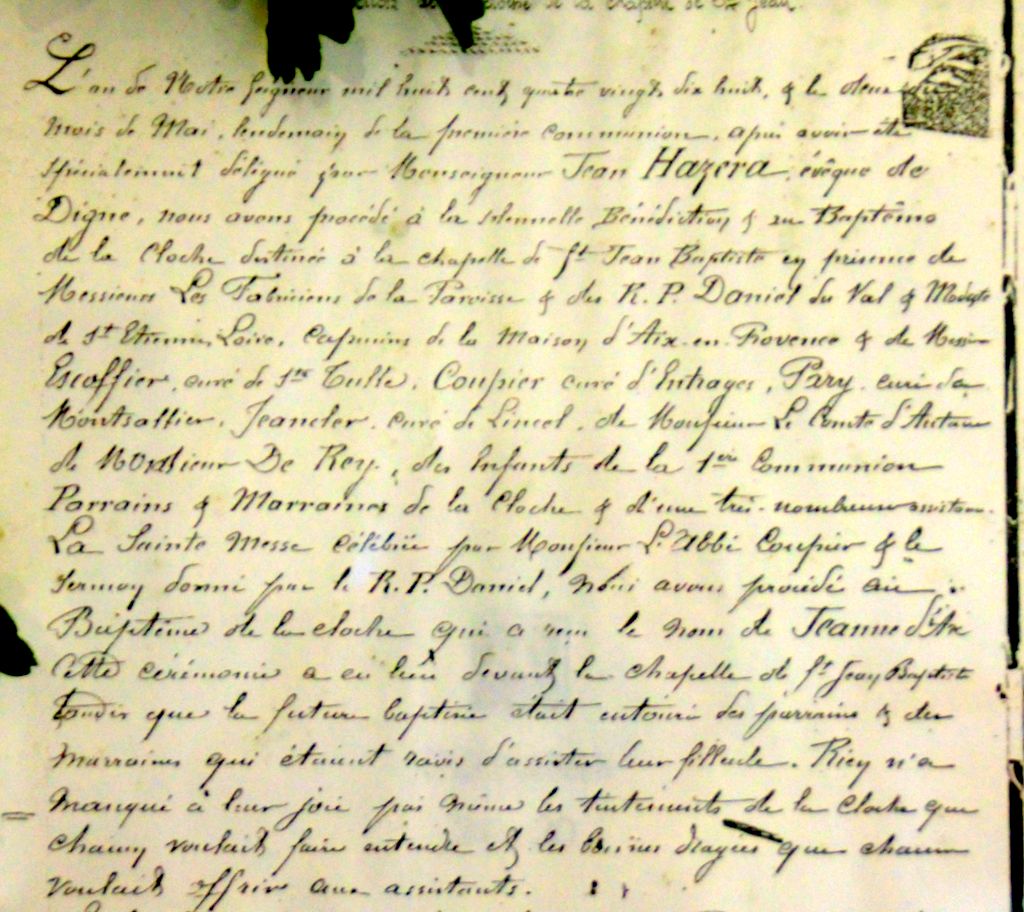 de la chapelle de St Jean.
L'an de Notre Seigneur mil huit cent quatre vingt dix huit, & le deux du
mois de Mai, lendemain de la première communion, après avoir été
spécialement délégué par Monseigneur Jean Hazera, évêque de
Digne, nous avons procédé à la solennelle Bénédiction & au Baptême
de la Cloche destinée à la chapelle de St Jean Baptiste en présence de
Messieurs Les Fabriciens de la Paroisse & des R. P. Daniel du Val & Modeste
de St Etienne, Loire, capucins de la Maison d'Aix-en-Provence & de Messieurs
Escoffier, curé de Ste Tulle, Coupier curé d'Entrages, Pary, curé de
Montsallier, Jeancler, curé de Lincel, de Monsieur Le Comte d'
de Monsieur De Rey, des Enfants de la 1ère Communion
Parrains & Marraines de la Cloche & d'une très-nombreuse assistance.
La Sainte Messe célébrée par Monsieur L'Abbé Coupier & le
sermon donné par le R. P. Daniel, nous avons procédé au
Baptême de la cloche qui a reçu le nom de Jeanne d'Arc
Cette cérémonie a eu lieu devant la chapelle de St Jean Baptiste
tandis que la future baptisée était entourée des parrains & des
marraines qui étaient ravis d'assister leur filleule. Rien n'a
manqué à leur joie pas même les tintements de la cloche que
chacun voulait faire entendre et les bonnes dragées que chacun
voulait offrir aux assistants.